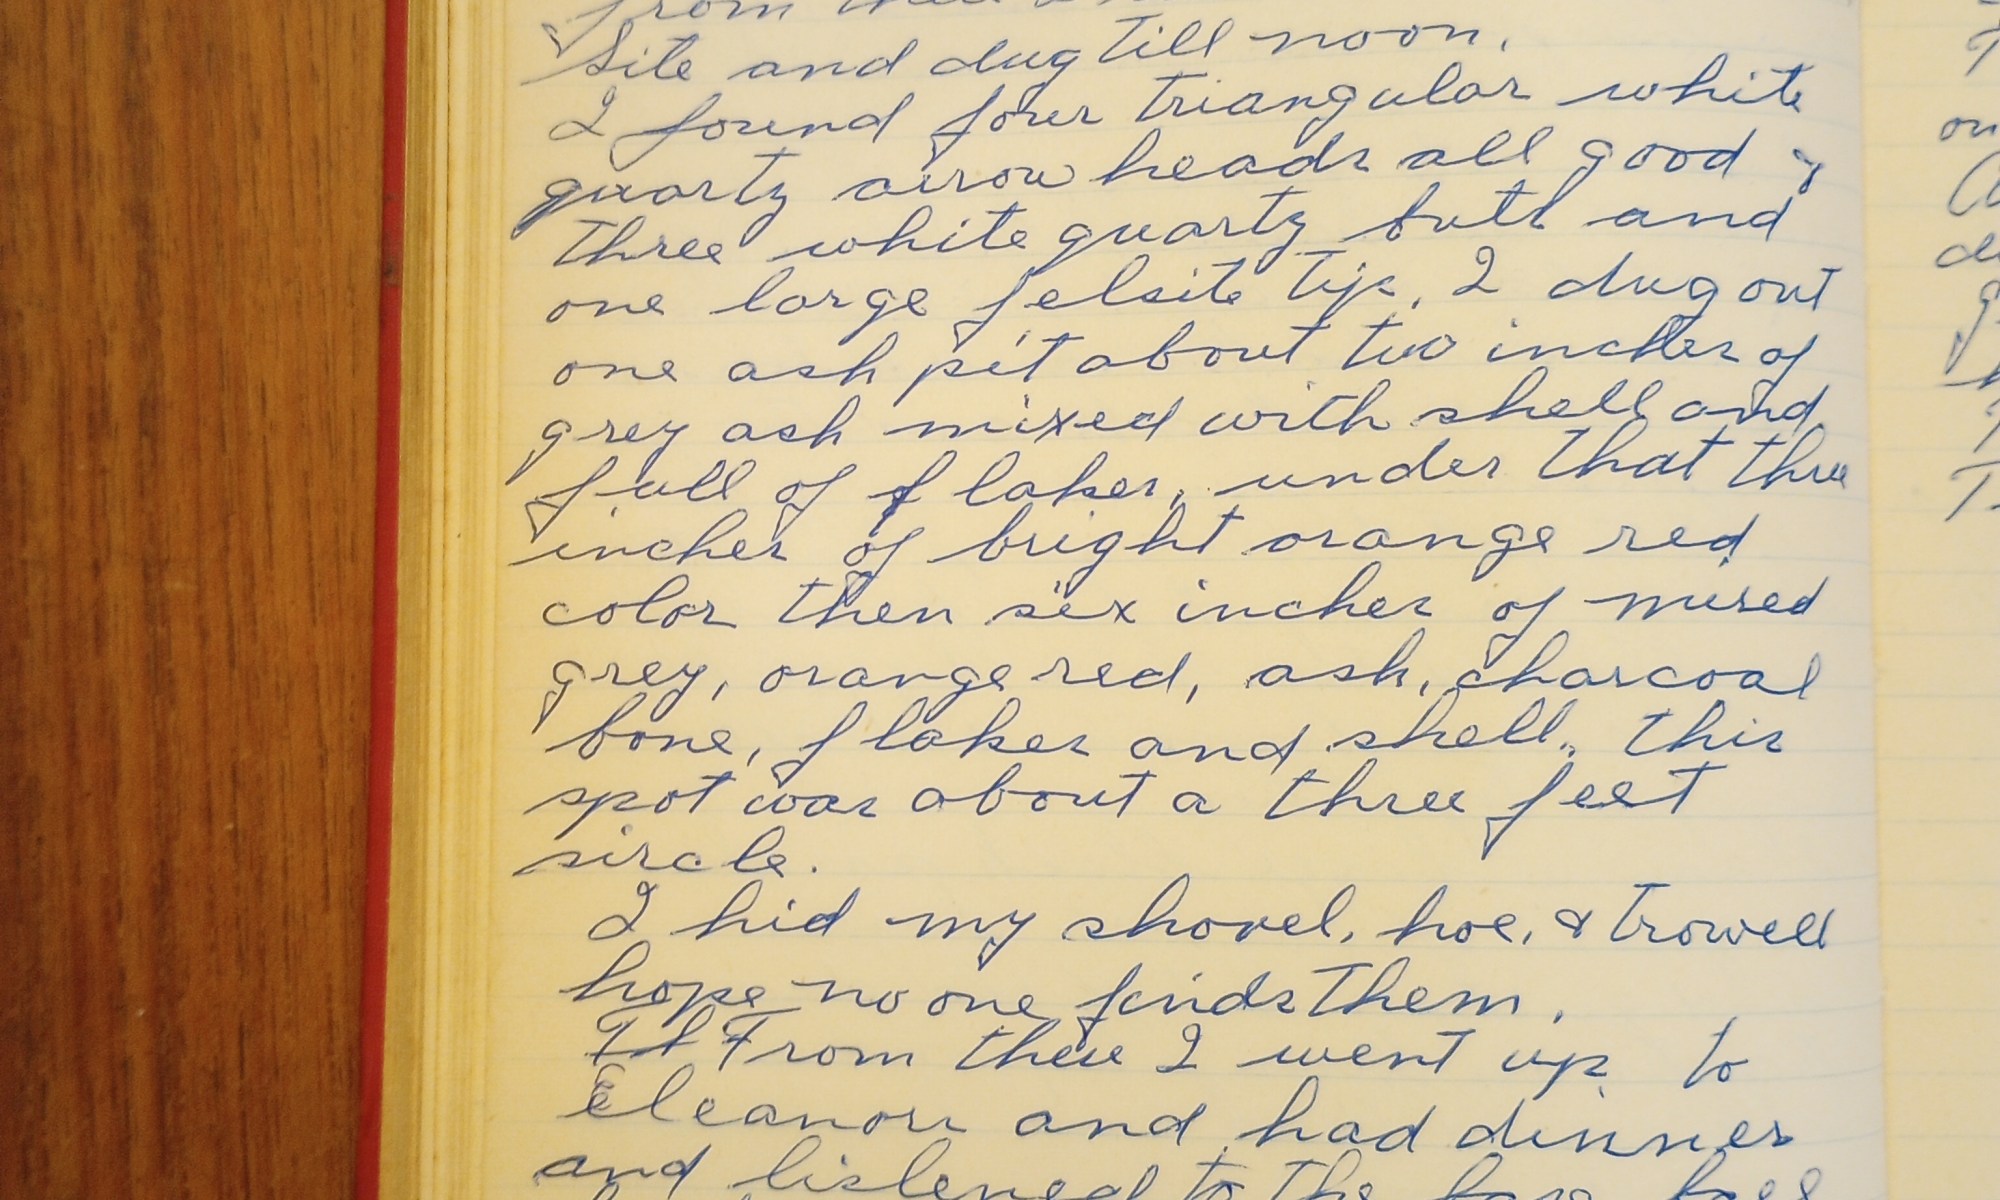 from
Site and dug till noon.
I found four triangular white
quartz arrow heads all good &
three white quartz butts and
one large felsite tip. I dug out
one ash pit about two inches of
grey ash mixed with shell and
full of flakes, under that three
inches of bright orange red
color then six inches of mixed
grey, orange red, ash, charcoal
bone, flakes and shell. this
spot was about a three feet
sircle.
I hid my shovel, hoe, & trowell
hope no one finds them.
From there I went up to
Eleanors and had dinner
and listened to the base ball
on